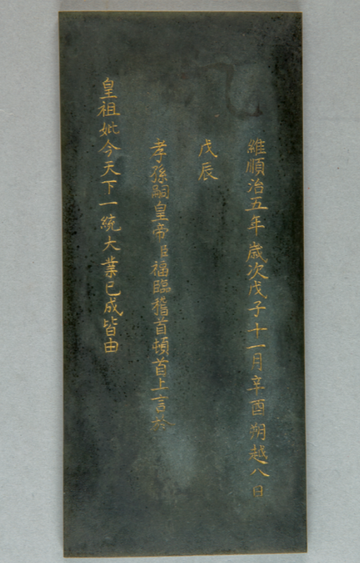 維順治五年歲次戊子十一月辛酉朔越八日
戊辰
孝孫嗣皇帝臣福臨稽首頓首上言於
皇祖妣今天下一統大業已成皆由